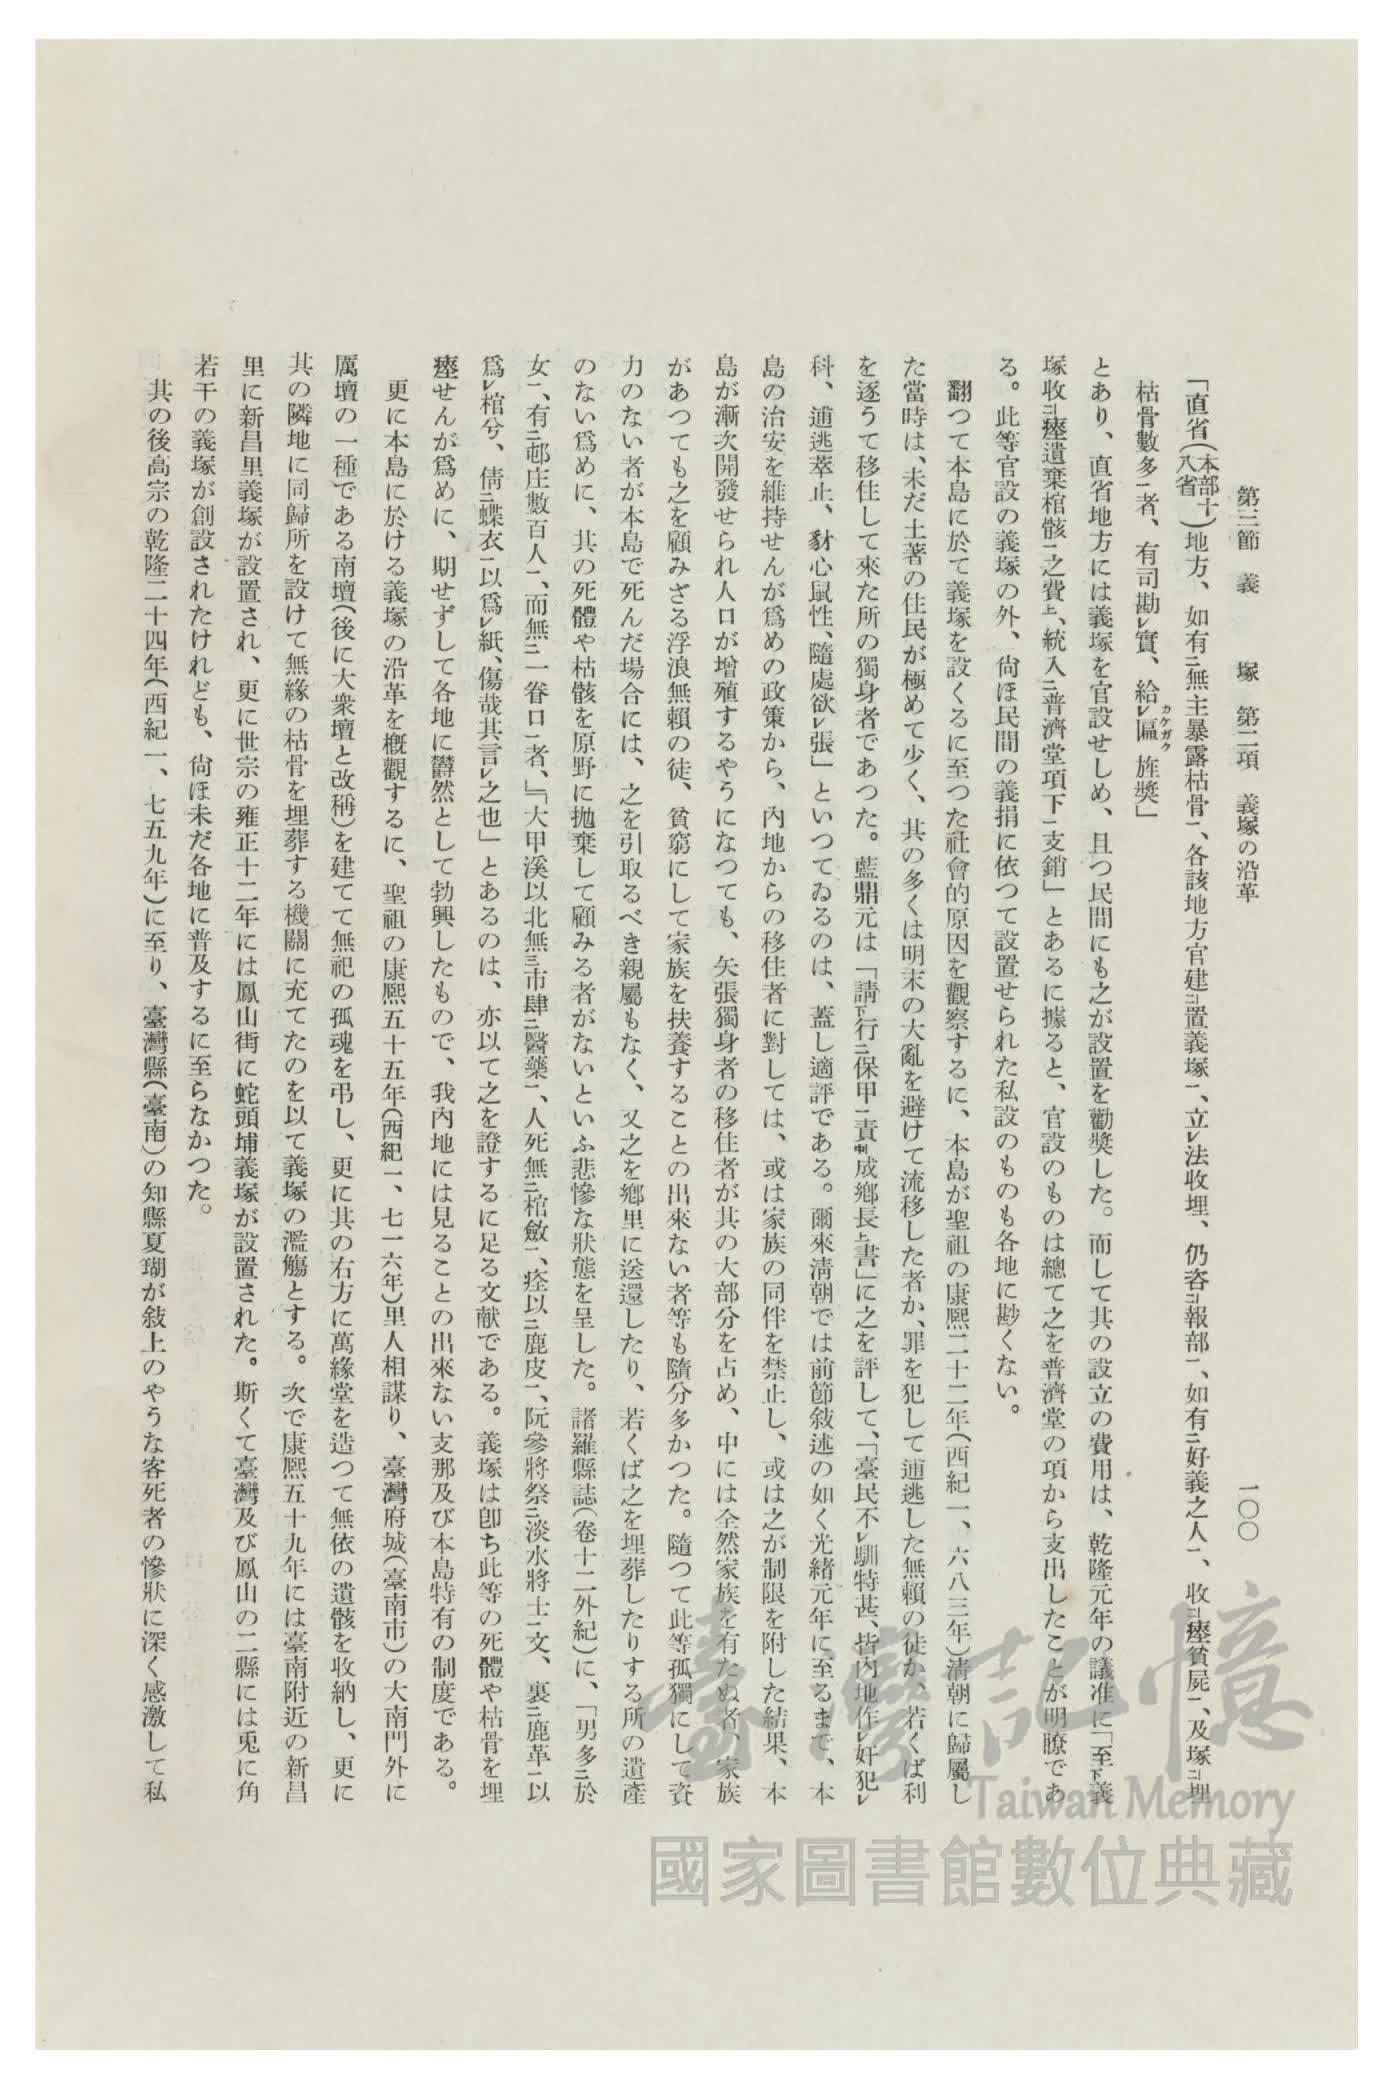 第三節　義　　塚　第二項　義塚の沿革　　　一〇〇
「直省(本部十八省)地方、如有二無主暴露枯骨一、各該地方官建二置義塚一、立レ法收埋、仍咨二報部一、如有二好義之人一、收二瘞貧屍一、及塚二埋
枯骨數多一者、有司勘レ實、給レ匾カケガク旌獎」
とあり、直省地方には義塚を官設せしめ、且つ民間にも之が設置を勸獎した。而して其の設立の費用は、乾隆元年の議准に「至下義
塚收二瘞遺棄棺骸一之費上、統入二普濟堂項下一支銷」とあるに據ると、官設のものは總て之を普濟堂の項から支出したことが明瞭であ
る。此等官設の義塚の外、尙ほ民間の義捐に依つて設置せられた私設のものも各地に尠くない。
翻つて本島に於て義塚を設くるに至つた社會的原因を觀察するに、本島が聖祖の康熙二十二年(西紀一、六八三年)清朝に歸屬し
た當時は、未だ土著の住民が極めて少く、其の多くは明末の大亂を避けて流移した者か、罪を犯して逋逃した無賴の徒か、若くば利
を逐うて移住して來た所の獨身者であつた。藍鼎元は「請下行二保甲一責中成鄕長上書」に之を評して、「臺民不レ馴特甚、皆內地作レ奸犯レ
科、逋逃萃止、豺心鼠性、隨處欲レ張」といつてゐるのは、蓋し適評である。爾來淸朝では前節敍述の如く光緖元年に至るまで、本
島の治安を維持せんが爲めの政策から、內地からの移住者に對しては、或は家族の同伴を禁止し、或は之が制限を附した結果、本
島が漸次開發せられ人口が增殖するやうになつても、矢張獨身者の移住者が其の大部分を占め、中には全然家族を有たぬ者、家族
があつても之を顧みざる浮浪無賴の徒、貧窮にして家族を扶養することの出來ない者等も隨分多かつた。隨つて此等孤獨にして資
力のない者が本島で死んだ場合には、之を引取るべき親屬もなく、又之を鄕里に送還したり、若くば之を埋葬したりする所の遺產
のない爲めに、其の死體や枯骸を原野に拋棄して顧みる者がないといふ悲慘な狀態を呈した。諸羅縣誌(卷十二外紀)に、「男多二於
女一、有二邨庄數百人一、而無二一眷口一者、」「大甲溪以北無三市肆二醫藥一、人死無二棺斂一、痊以二鹿皮一、阮參將祭二淡水將士一文、裏二鹿革一以
爲レ棺兮、倩二蝶衣一以爲レ紙、傷哉其言レ之也」とあるのは、亦以て之を證するに足る文献である。義塚は卽ち此等の死體や枯骨を埋
瘞せんが爲めに、期せずして各地に欝然として勃興したもので、我內地には見ることの出來ない支那及び本島特有の制度である。
更に本島に於ける義塚の沿革を槪觀するに、聖祖の康熙五十五年(西紀一、七一六年)里人相謀り、臺灣府城(臺南市)の大南門外に
厲壇の一種である南壇(後に大衆壇と改稱)を建てて無祀の孤魂を弔し、更に其の右方に萬緣堂を造つて無依の遺骸を收納し、更に
其の隣地に同歸所を設けて無緣の枯骨を埋葬する機關に充てたのを以て義塚の濫觴とする。次で康熙五十九年には臺南附近の新昌
里に新昌里義塚が設置され、更に世宗の雍正十二年には鳳山街に蛇頭埔義塚が設置された。斯くて臺灣及び鳳山の二縣には兎に角
若干の義塚が創設されたけれども、尙ほ未だ各地に普及するに至らなかつた。
其の後高宗の乾隆二十四年(西紀一、七五九年)に至り、臺灣縣(臺南)の知縣夏瑚が敍上のやうな客死者の慘狀に深く感激して私
臺灣記憶
Taiwan Memory
國家圖書館數位典藏